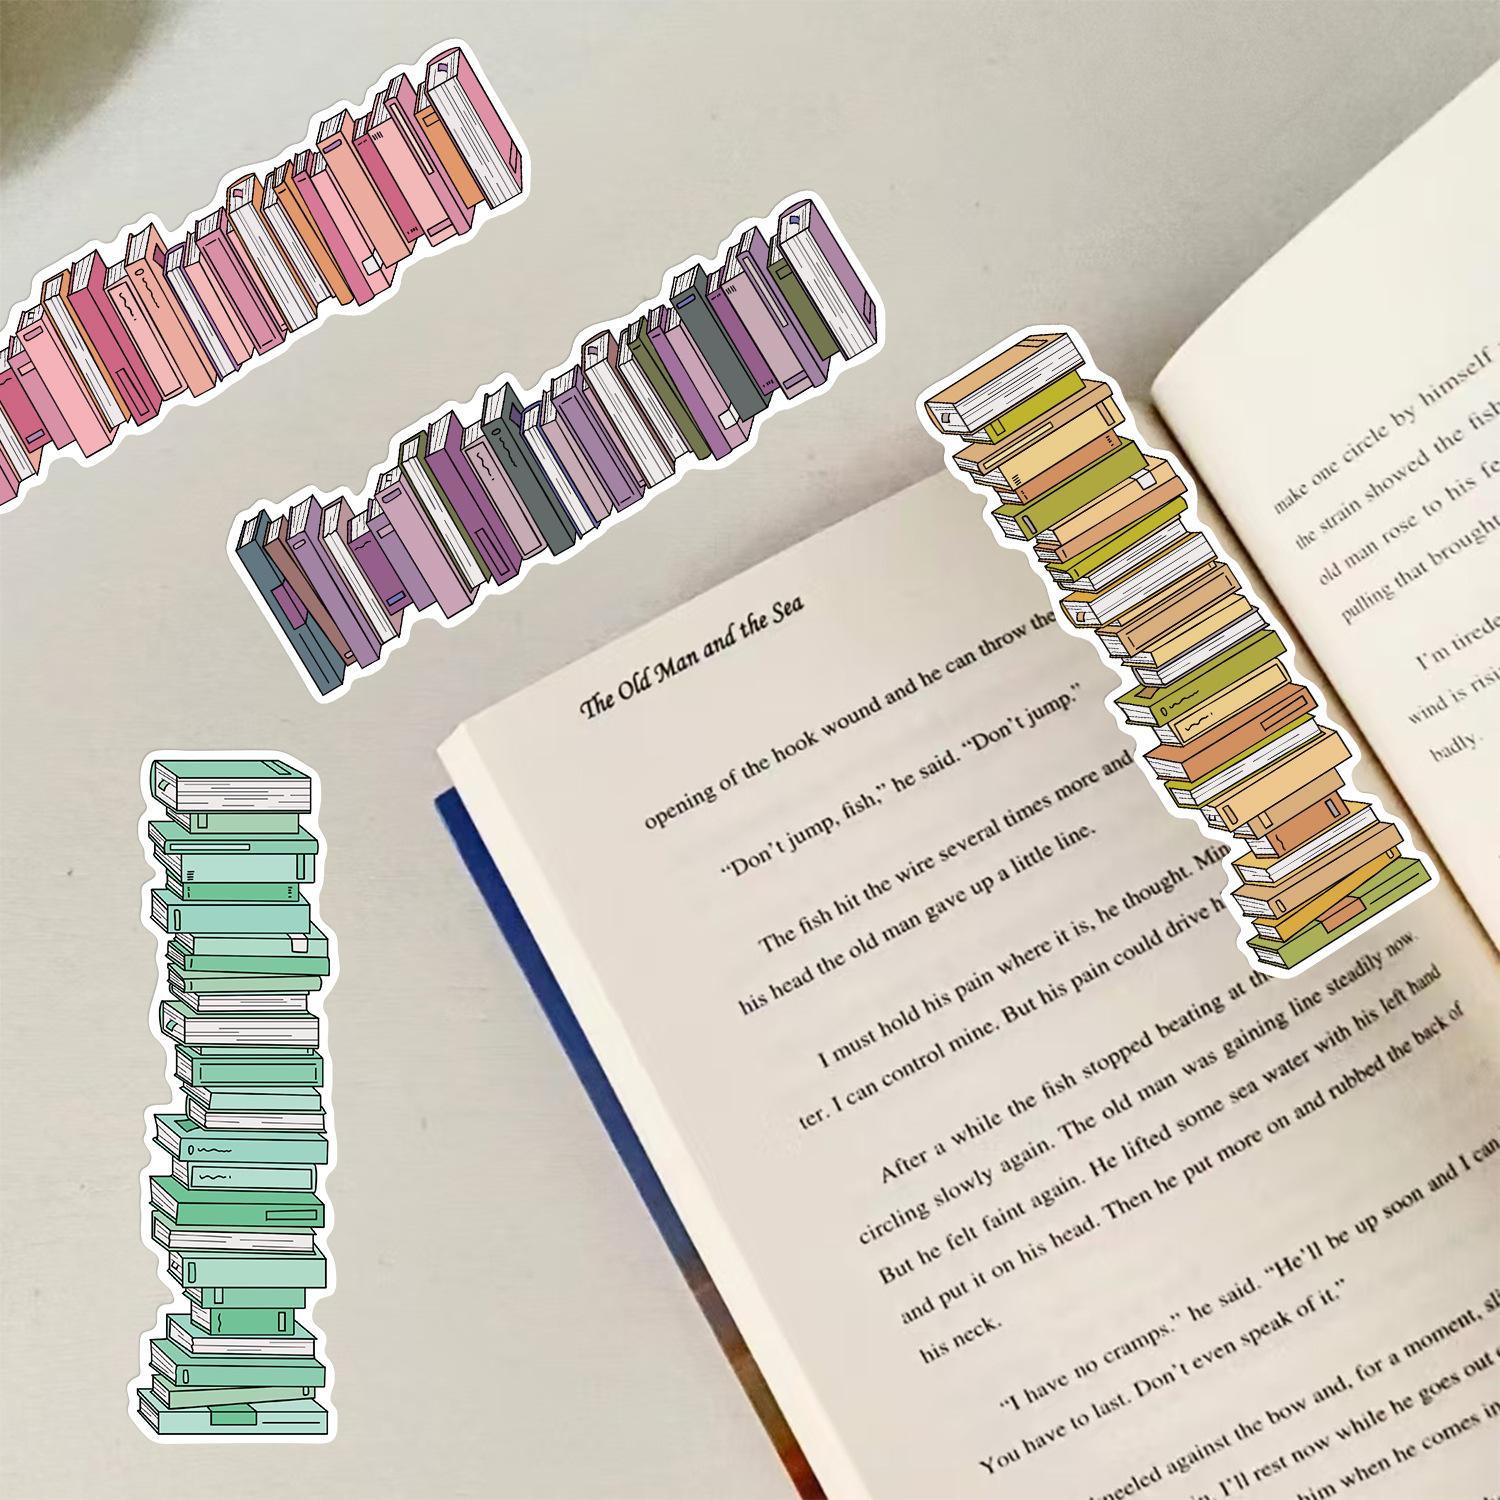 The Old Man and the Sea
opening of the hook wound and he can throw the
"Don't jump, fish," he said. "Don't jump."
The fish hit the wire several times more and
his head the old man gave up a little line.
I must hold his pain where it is, he thought.
ter. I can control mine. But his pain could drive
After a while the fish stopped beating at
circling slowly again. The old man was gaining line steadily now.
But he felt faint again. He lifted some sea water with his left hand
and put it on his head. Then he put more on and rubbed the back of
his neck.
"I have no cramps." he said. "He'll be up soon and I can
You have to last. Don't even speak of it."
against the bow and, for a moment,
I'll rest now while he goes out
him when he comes in
make one circle by himself
the strain showed the fish
old man rose to his
pulling that brought
I'm
wind is
badly.